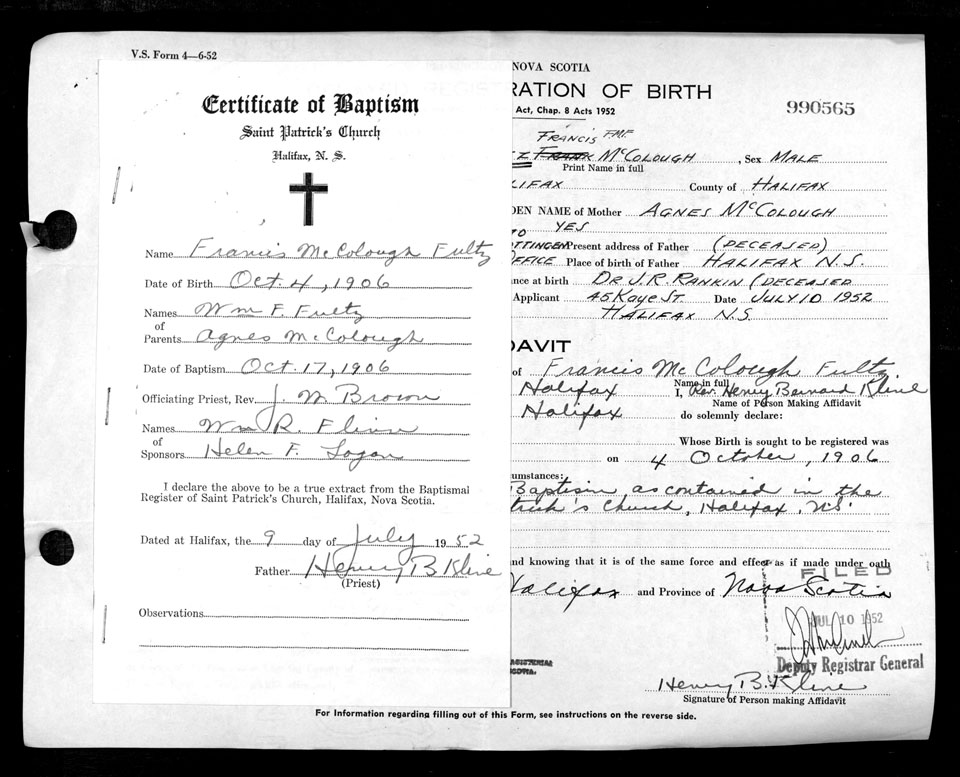 V.S. Form 4—6-52
Certificate of Baptism
Saint Patrick's Church
Halifax, N. S.
Name Francis McColough Fultz
Date of Birth Oct. 4, 1906
Names Wm F. Fultz
of
Parents Agnes McColough
Date of Baptism Oct. 17, 1906
Officiating Priest, Rev. J. M. Brown
Names Wm R. Flinn
of
Sponsors Helen F. Logan
I declare the above to be a true extract from the Baptismal
Register of Saint Patrick's Church, Halifax, Nova Scotia.
Dated at Halifax, the 9 day of July 1952
Father Henry B Kline
(Priest)
Observations
NOVA SCOTIA
RATION OF BIRTH
Act, Chap. 8 Acts 1952
990565
FRANCIS FMF
FRANK McCOLOUGH , Sex MALE
Print Name in full
LIFAX County of HALIFAX
DEN NAME of Mother AGNES McCOLOUGH
TO YES
OTTINGEN Present address of Father (DECEASED)
OFFICE Place of birth of Father HALIFAX N.S.
nce at birth DR J.R. RANKIN (DECEASED
Applicant 45 KAYE ST. Date JULY 10 1952
HALIFAX N.S.
DAVIT
of Francis McColough Fultz
Name in full
Halifax I, Rev. Henry Bernard Kline
Name of Person Making Affidavit
Halifax do solemnly declare:
Whose Birth is sought to be registered was
on 4 October, 1906
umstances:
Baptism as contained in the
trick's Church, Halifax, N.S.
nd knowing that it is of the same force and effect as if made under oath
FILED
Halifax and Province of Nova Scotia
JUL 10 1952
Deputy Registrar General
Henry B. Kline
Signature of Person making Affidavit
For Information regarding filling out of this Form, see instructions on the reverse side.